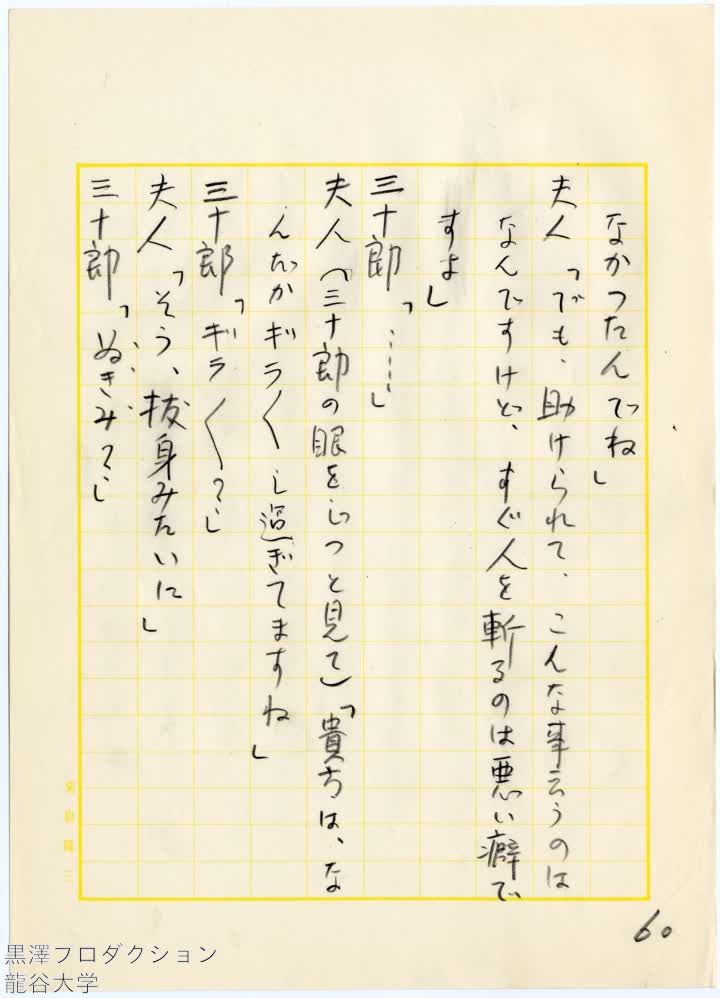 なかつたんでね」
夫人「でも、助けられて、こんな事云うのは
なんですけど、すぐ人を斬るのは悪い癖で
すよ」
三十郎「……」
夫人（三十郎の眼をじつと見て）「貴方は、な
んだかギラ〱し過ぎてますね」
三十郎「ギラ〱？」
夫人「そう、抜身みたいに」
三十郎「ぬきみ？」
60
黒澤プロダクション
龍谷大学